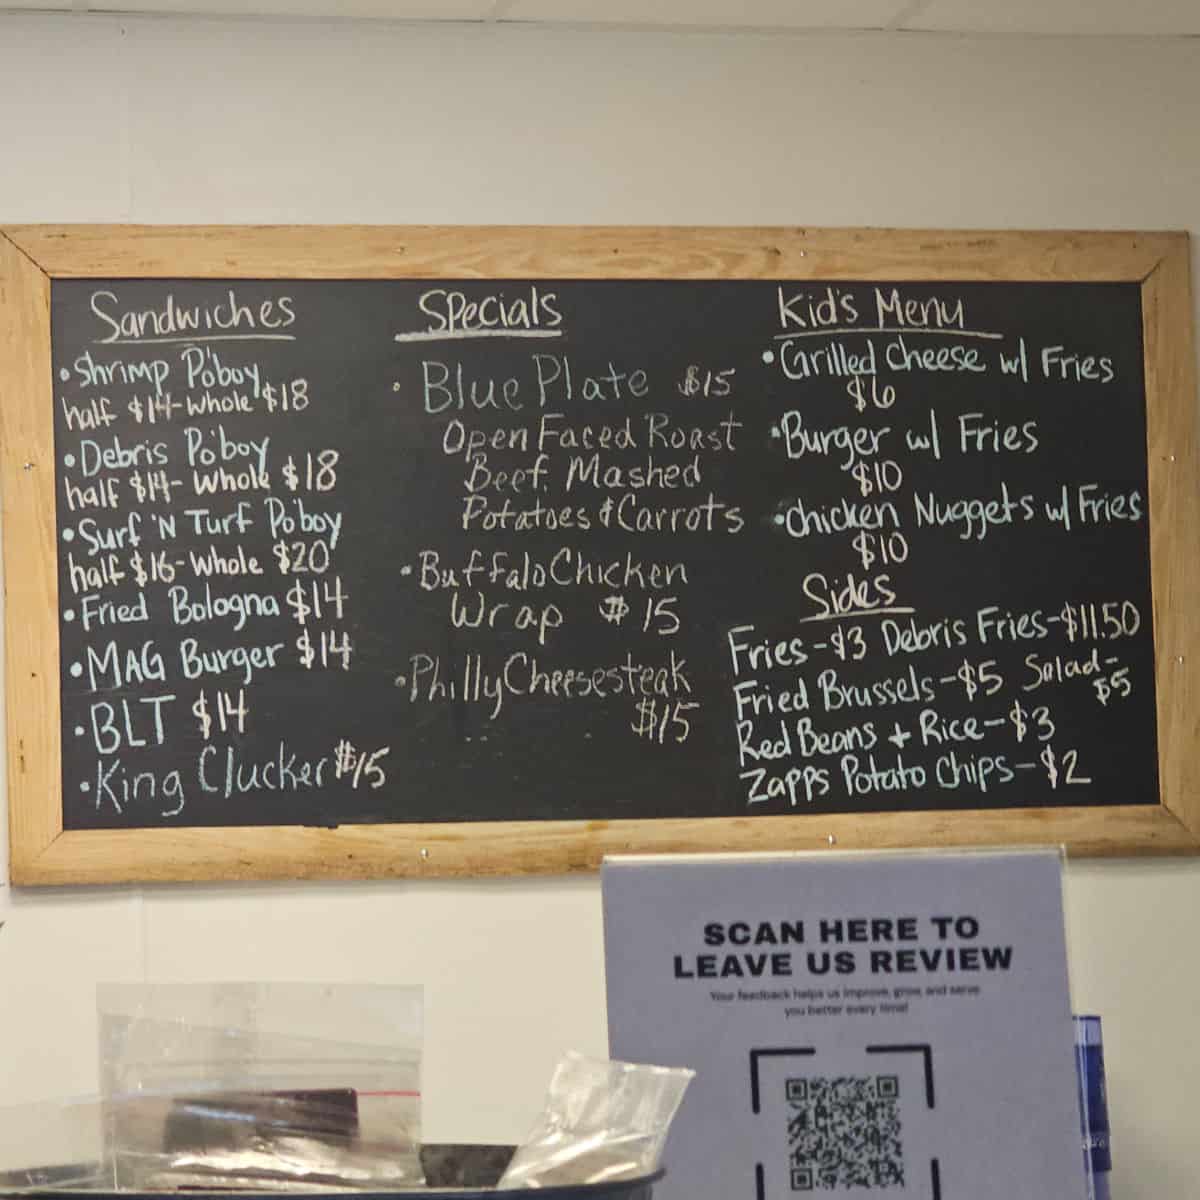 Sandwiches
• Shrimp Po'boy
half $14-whole $18
• Debris Po'boy
half $14-Whole $18
• Surf 'N Turf Po'boy
half $16-Whole $20
• Fried Bologna $14
• MAG Burger $14
• BLT $14
• King Clucker $15
Specials
• Blue Plate $15
Open Faced Roast
Beef. Mashed
Potatoes & Carrots
• Buffalo Chicken
Wrap $15
• Philly Cheesesteak
$15
Kid's Menu
• Grilled Cheese w/ Fries
$6
• Burger w/ Fries
$10
• Chicken Nuggets w/ Fries
$10
Sides
Fries-$3 Debris Fries-$11.50
Fried Brussels-$5 Salad-
$5
Red Beans + Rice-$3
Zapps Potato Chips-$2
SCAN HERE TO
LEAVE US REVIEW
Your feedback helps us improve, grow, and serve
you better every time!